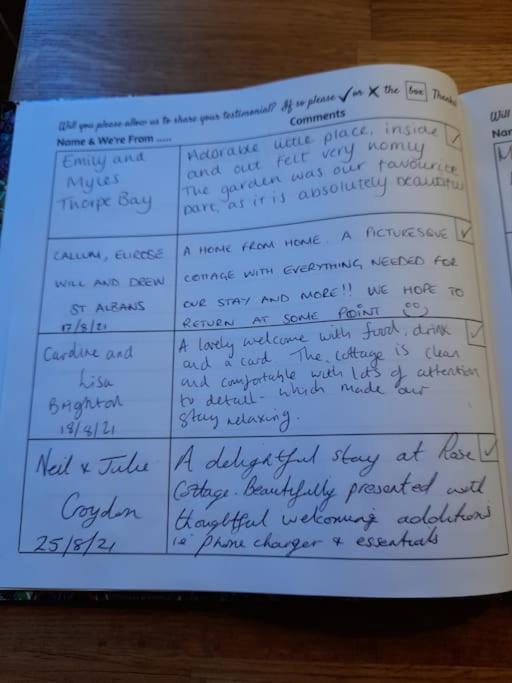 Will you please allow us to share your testimonial? If so please ✓ or ✗ the box Thanks
Name & We're From ..... Comments
Emily and
Myles
Thorpe Bay
Adorable little place, inside
and out felt very homly
The garden was our favourite
part, as it is absolutely beautiful
CALLUM, ELIROSE
WILL AND DREW
ST ALBANS
17/8/21
A HOME FROM HOME. A PICTURESQUE
COTTAGE WITH EVERYTHING NEEDED FOR
OUR STAY AND MORE!! WE HOPE TO
RETURN AT SOME POINT
Caroline and
Lisa
Brighton
18/8/21
A lovely welcome with food, drink
and a card. The cottage is clean
and comfortable with lots of attention
to detail - which made our
stay relaxing.
Neil & Julie
Croydon
25/8/21
A delightful stay at Rose
Cottage. Beautifully presented with
thoughtful welcoming additions
ie phone charger & essentials
Will
Nam
M